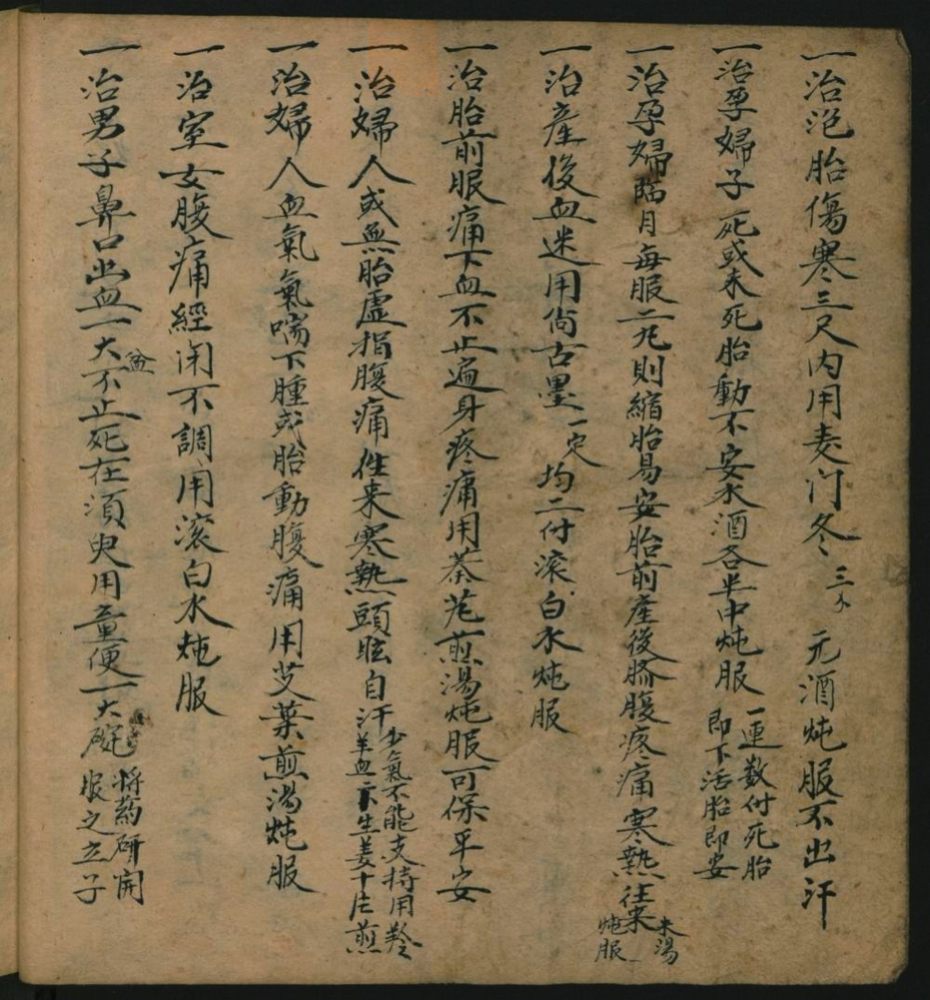 一治孢胎傷寒三尺内用麦门冬三分元酒炖服不出汗
一治孕婦子死或未死胎動不安水酒各半中炖服一連数付死胎即下活胎即安
一治孕婦臨月每服二丸則縮胎易安胎前產後臍腹疼痛寒熱往來米湯炖服
一治產後血迷用尚古墨一定均二付滚白水炖服
一治胎前服痛下血不止遍身疼痛用茶芘煎湯炖服可保平安
一治婦人或無胎虛損腹痛徃来寒熱頭眩自汗少氣不能支持用羚羊血二下生姜十片煎
一治婦人血氣氣喘下腫或胎動腹痛用艾葉煎湯炖服
一治室女腹痛經闭不調用滚白水炖服
一治男子鼻口出血一大盆不止死在須臾用童便一大碗将药研開服之立子